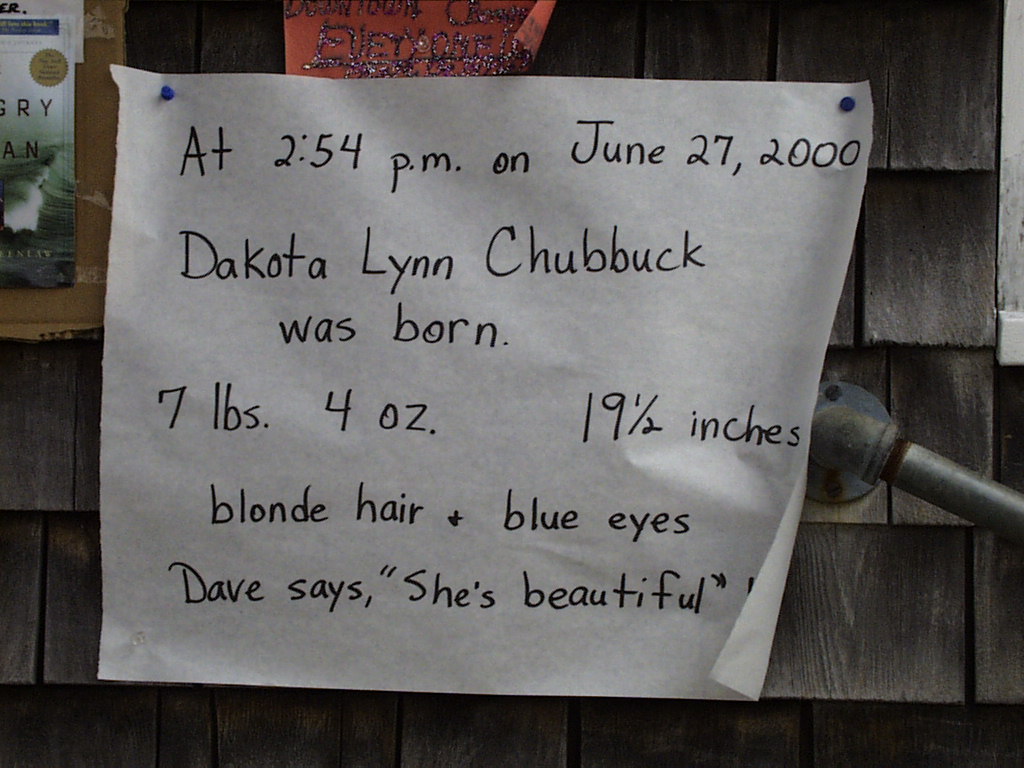 ER.
GRY
AN
DOWNTOWN
EVERYONE!!
At 2:54 p.m. on June 27, 2000
Dakota Lynn Chubbuck
was born.
7 lbs. 4 oz. 19½ inches
blonde hair + blue eyes
Dave says, "She's beautiful" !